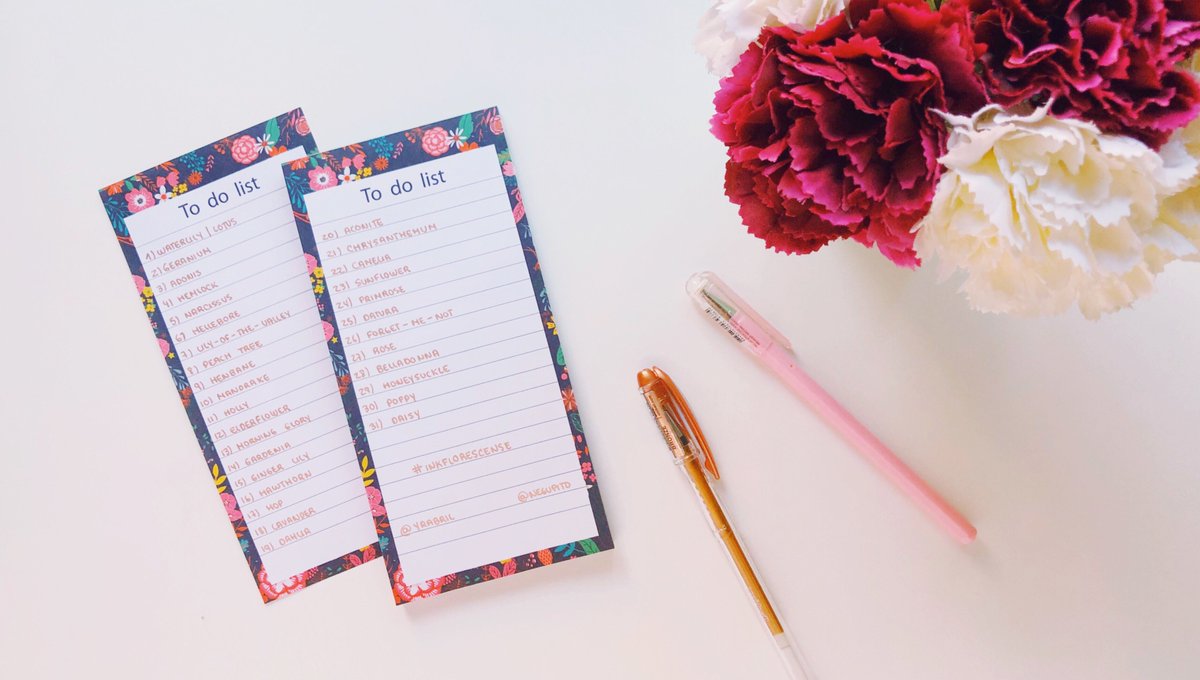 To do list
1) WATERLILY / LOTUS
2) GERANIUM
3) ADONIS
4) HEMLOCK
5) NARCISSUS
6) HELLEBORE
7) LILY-OF-THE-VALLEY
8) PEACH TREE
9) HENBANE
10) MANDRAKE
11) HOLLY
12) ELDERFLOWER
13) MORNING GLORY
14) GARDENIA
15) GINGER LILY
16) HAWTHORN
17) HOP
18) LAVANDER
19) DAHLIA
To do list
20) ACONITE
21) CHRYSANTHEMUM
22) CAMELIA
23) SUNFLOWER
24) PRIMROSE
25) DATURA
26) FORGET-ME-NOT
27) ROSE
28) BELLADONNA
29) HONEYSUCKLE
30) POPPY
31) DAISY
#INKFLORESCENSE
@NEGUPITO
@YRABRIL